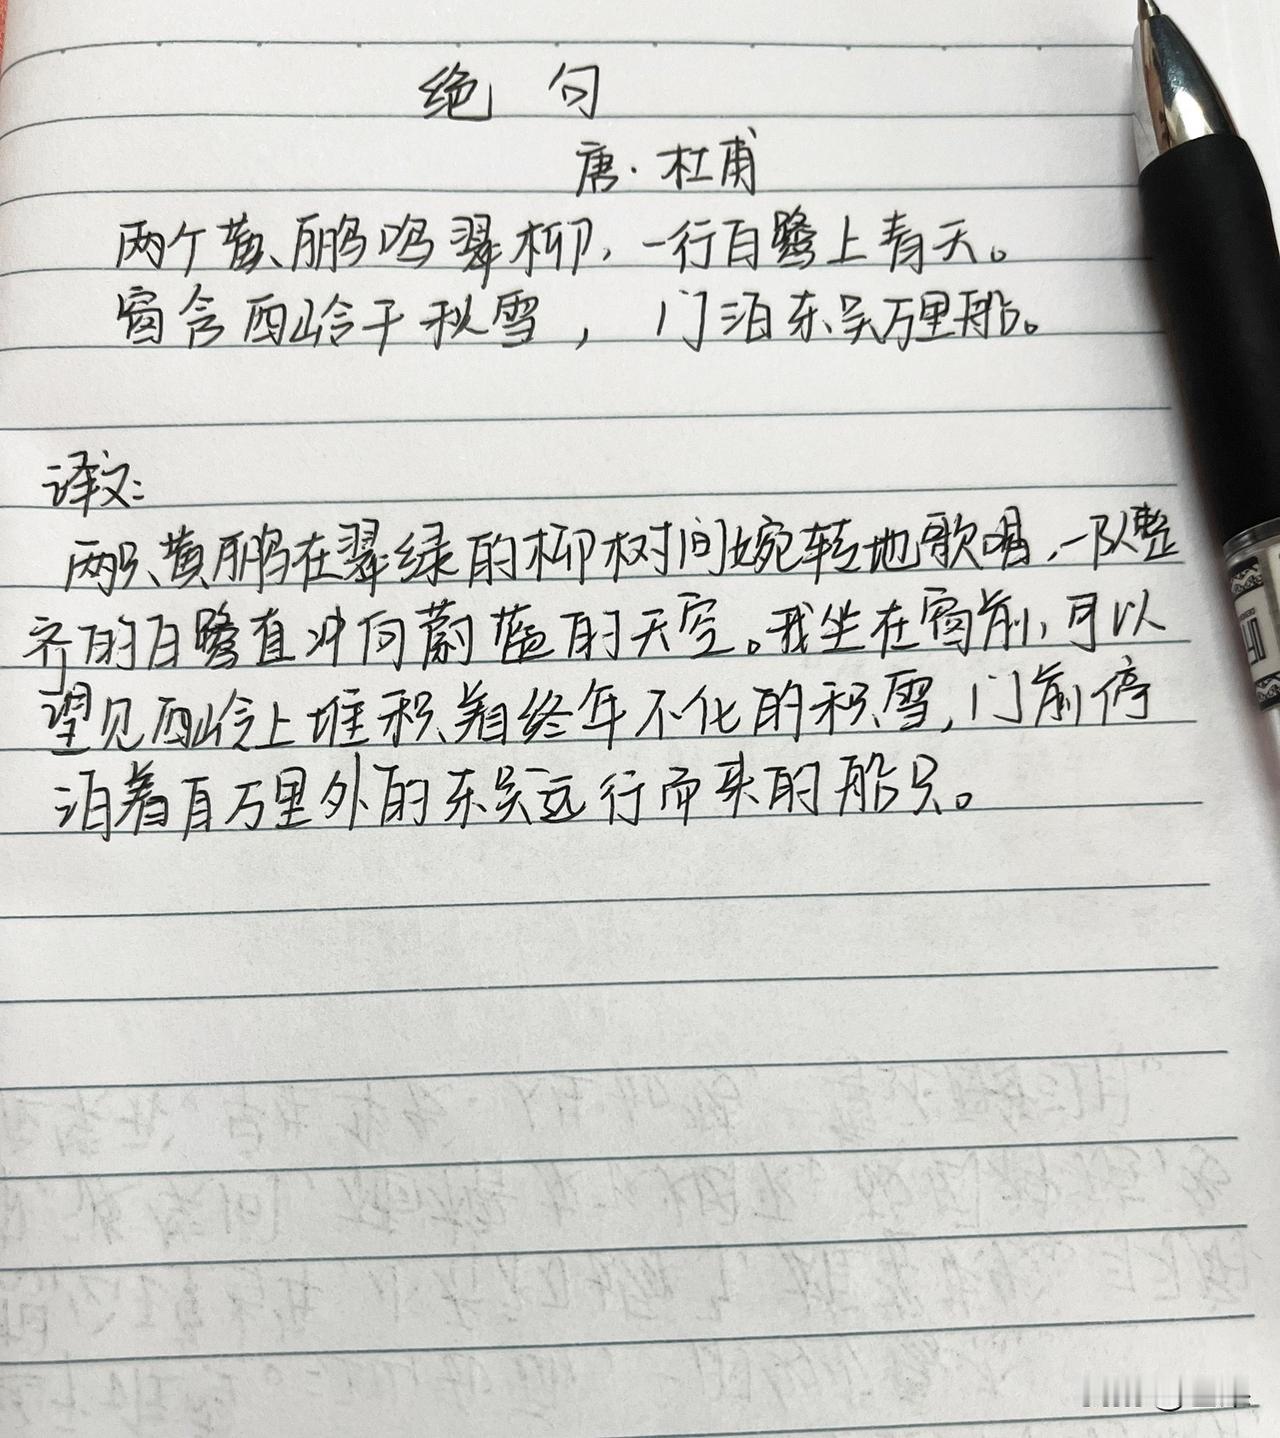 绝句
唐·杜甫
两个黄鹂鸣翠柳,一行白鹭上青天。
窗含西岭千秋雪,门泊东吴万里船。
译文:
两只黄鹂在翠绿的柳树间婉转地歌唱,一队整
齐的白鹭直冲向蔚蓝的天空。我坐在窗前,可以
望见西岭上堆积着终年不化的积雪,门前停
泊着自万里外的东吴远行而来的船只。